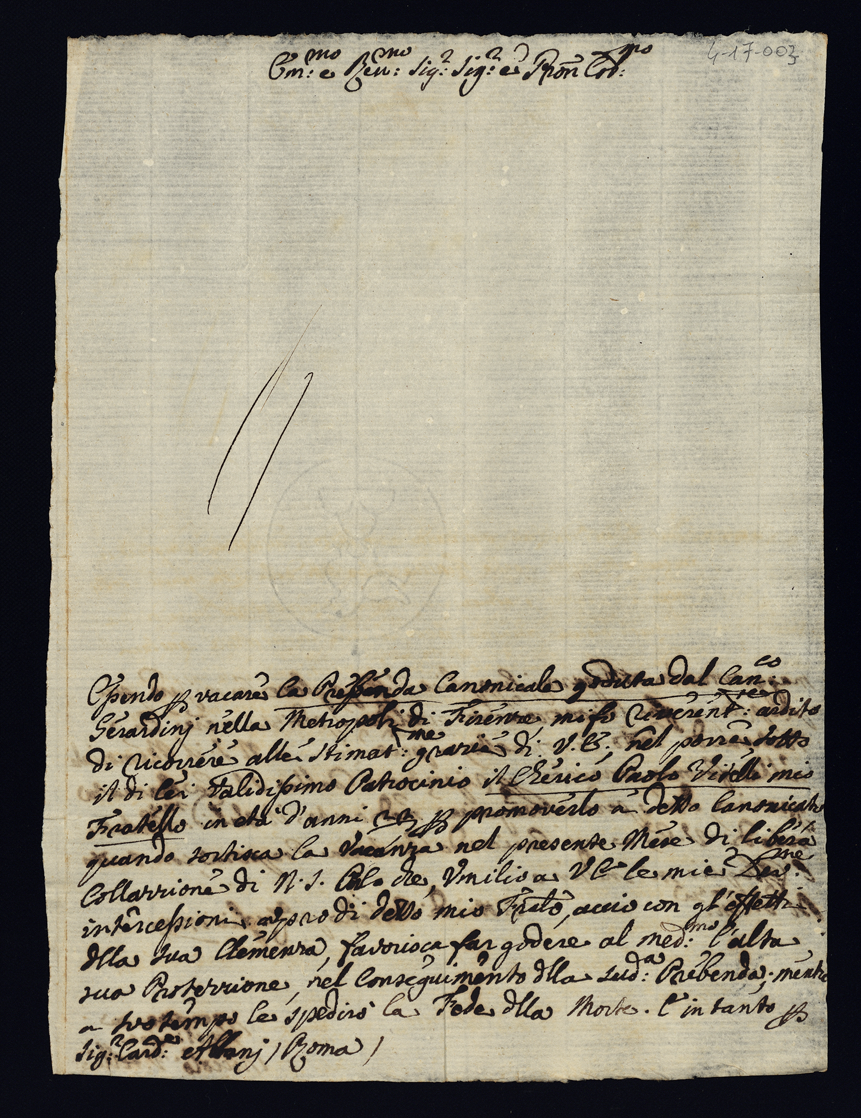 4-17-003
Em:mo e Reu:mo Sig:r Sig:r e Pron Col:mo
Essendo p vacare la Prebenda Canonicale goduta dal Can:co
Gerardinj nella Metropoli di Firenze mi fo riuerent:te ardito
di ricorrere alle stimat:me grazie di V.E., nel porre sotto
il di lei Validissimo Patrocinio il Cherico Paolo Vitelli mio
Fratello in età d'anni 22 p promoverlo a detto Canonicato
quando sortisca la Vacanza nel presente Mese di libera
Collazzione di N. S. Pdo che, Vmilio a VE le mie
intercessioni a pro di detto mio Fratło, accio con gl'effetti
dlla sua Clemenza, favorisca far godere al med:mo l'alta
sua Protezzione, nel Conseguimento dlla sud:a Prebenda, mentre
a suo tempo le spedirò la Fede dlla Morte. E in tanto p
Sig:r Card:e Albanj / Roma /